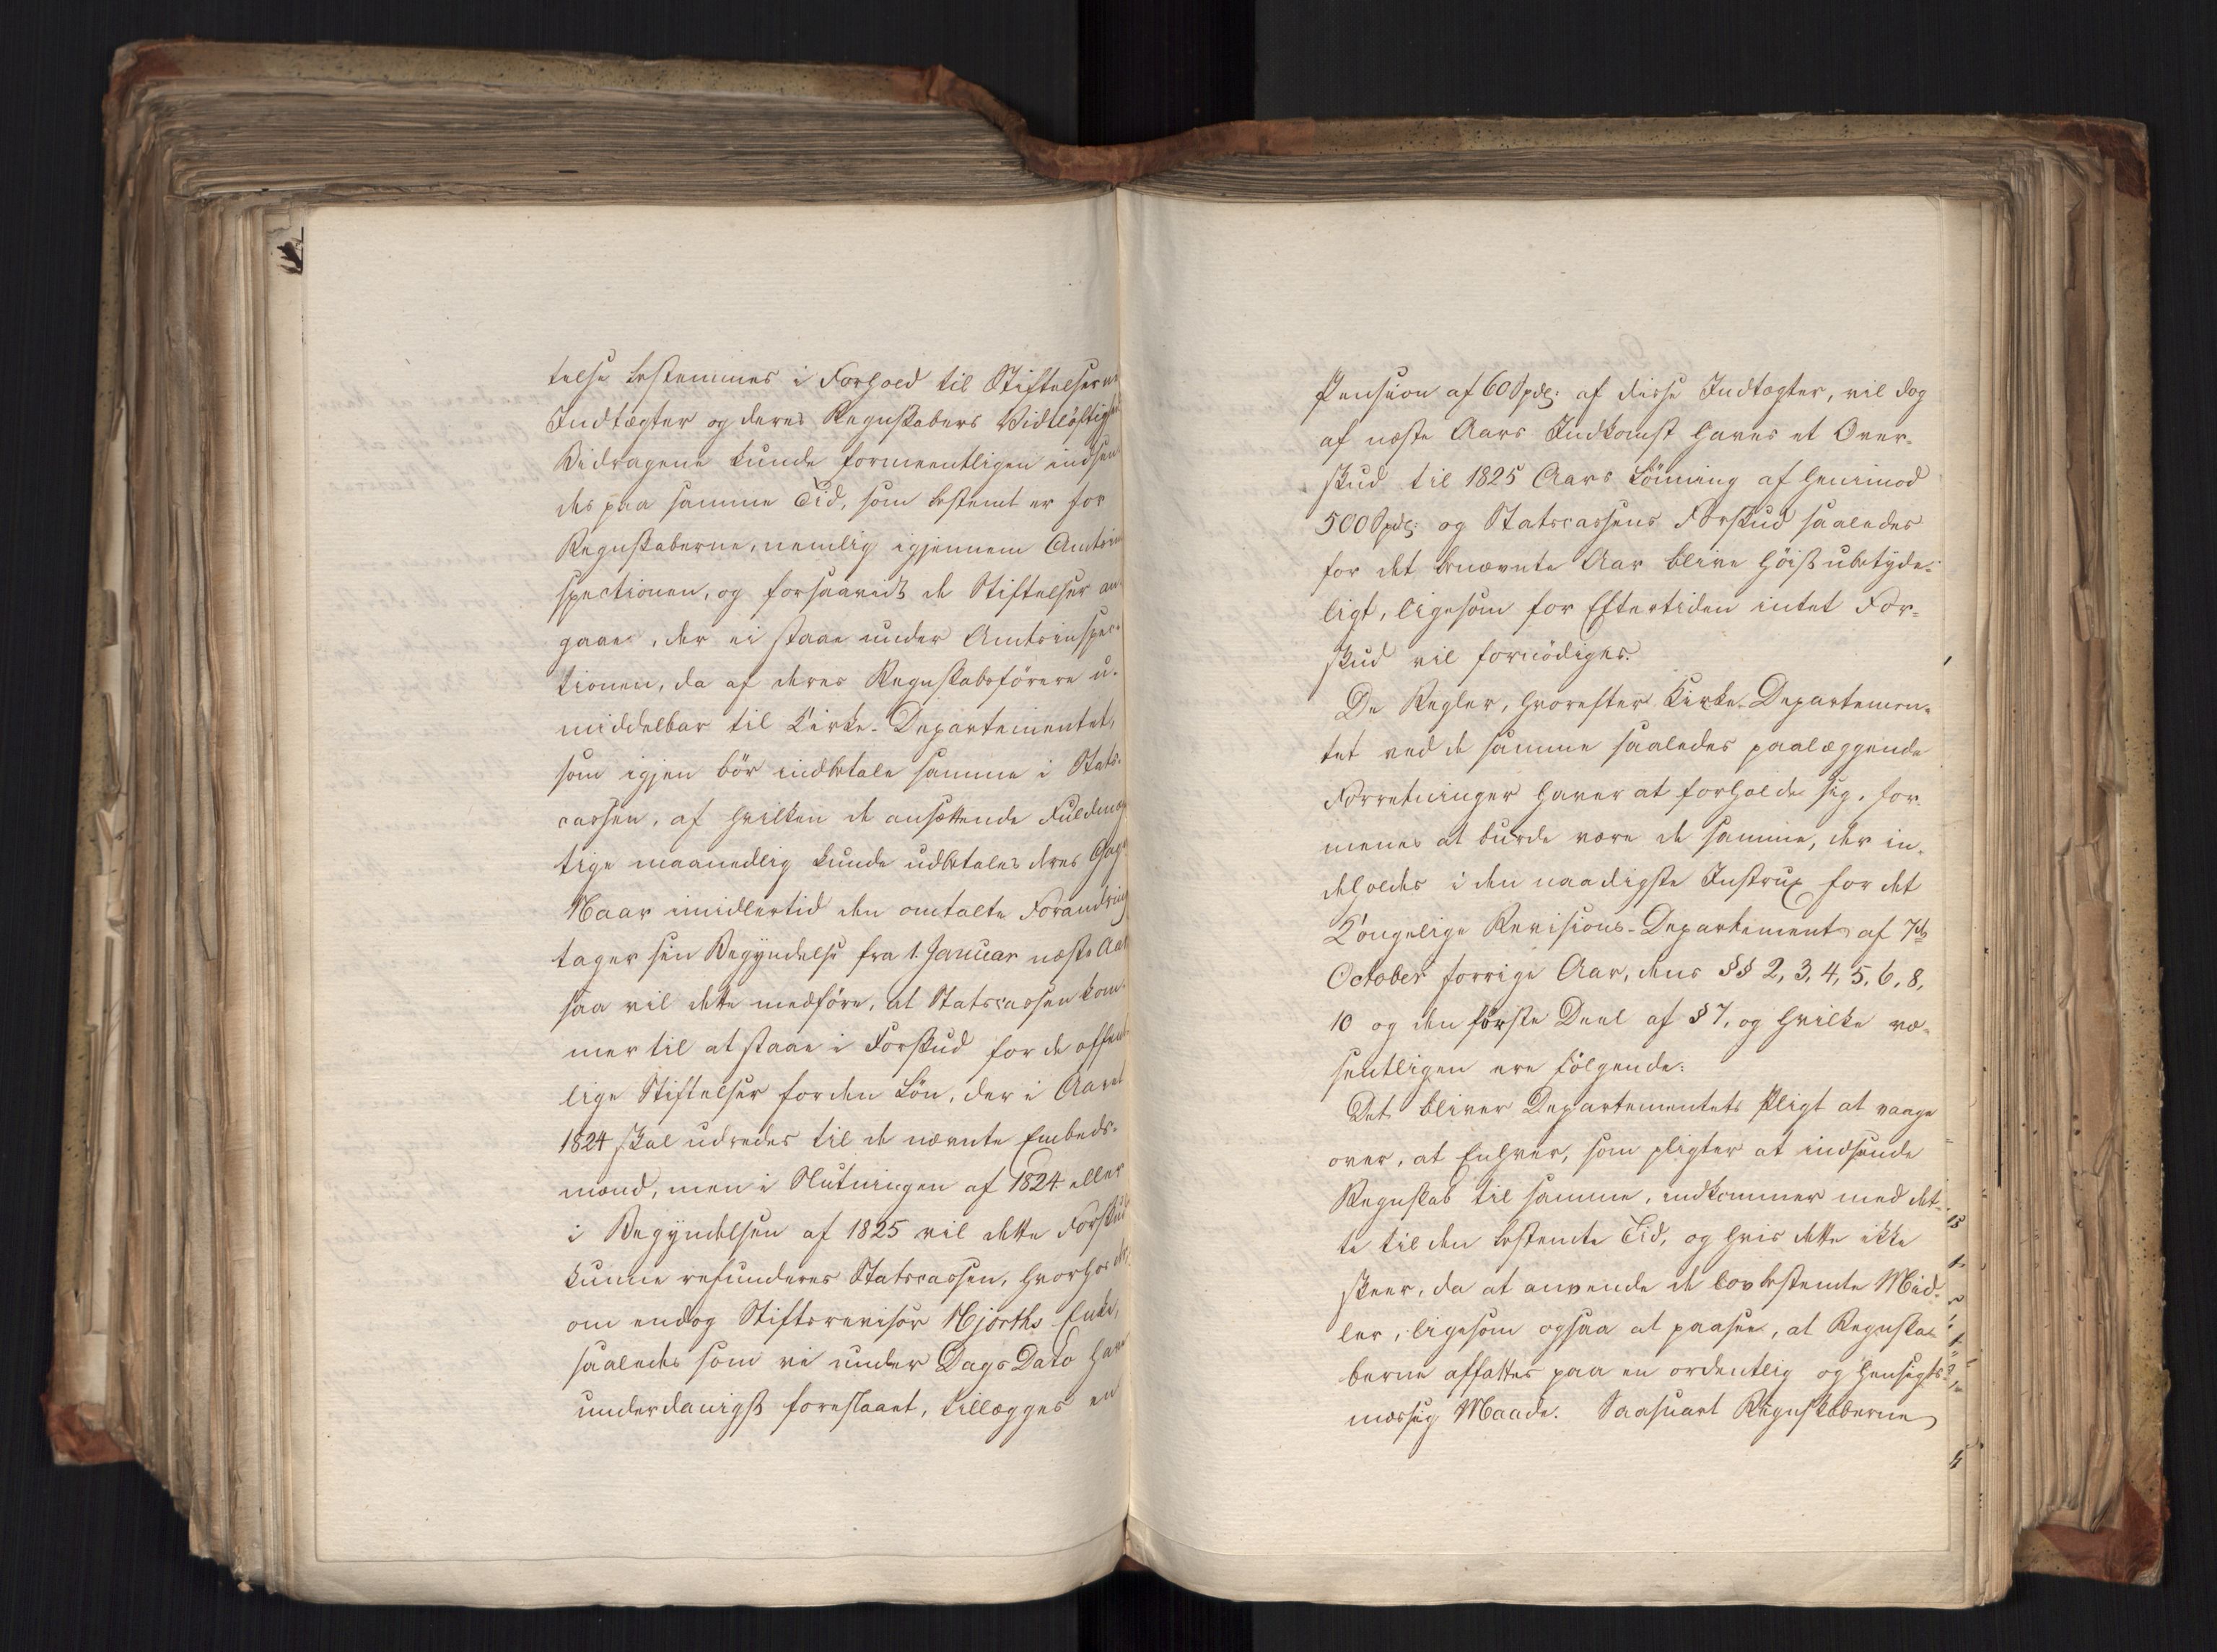 telse bestemmes i Forhold til Stiftelserne
Indtægter og deres Regnskabers Vidtløftighed
Bidragene kunde formeentligen indsen-
des paa samme Tid, som bestemt er for
Regnskaberne, nemlig igjennem Amtsin
spectionen, og forsaavidt de Stiftelser an-
gaae, der ei staae under Amtsinspec-
tionen, da af deres Regnskabsförere u-
middelbar til Kirke-Departementet,
som igjen bör indbetale samme i Stats-
cassen, af hvilken de ansættende Fuldmæg
tige maanedlig kunde udbetales deres Gage
Naar imidlertid den omtalte Forandring
tager sin Begyndelse fra 1. Januar næste Aar
saa vil dette medföre, at Statscassen kom-
mer til at staae i Forskud for de offent
lige Stiftelser for den Lön, der i Aaret
1824 skal udredes til de nævnte Embeds-
mænd, men i Slutningen af 1824 eller
i Begyndelsen af 1825 vil dette Forskud
kunne refunderes Statscassen, hvorhos
om endog Stiftsrevisor Hjorths Enke,
saaledes som vi under Dags Dato have
underdanigst foreslaaet, tillægges en
Pension af 60 Spdl: af disse Indtægter, vil dog
af næste Aars Indkomst haves et Over-
skud til 1825 Aars Lönning af henimod
500 Spdl: og Statscassens Forskud saaledes
for det benævnte Aar blive höist ubetyde-
ligt, ligesom for Eftertiden intet For-
skud vil fornödiges.
De Regler, hvorefter Kirke-Departemen-
tet ved de samme saaledes paalæggende
Forretninger haver at forholde sig, for-
menes at burde være de samme, der in-
deholdes i den naadigste Instrux for det
Kongelige Revisions-Departement af 7de
October forrige Aar, dens §§ 2, 3, 4, 5, 6, 8,
10 og den förste Deel af § 7, og hvilke væ-
sentligen ere fölgende:
Det bliver Departementets Pligt at vaage
over, at Enhver, som pligter at indsende
Regnskab til samme, indkommer med det-
te til den bestemte Tid, og hvis dette ikke
skeer, da at anvende de lovbestemte Mid-
ler, ligesom ogsaa at paasee, at Regnska-
berne affattes paa en ordentlig og hensigts-
mæssig Maade. Saasnart Regnskaberne